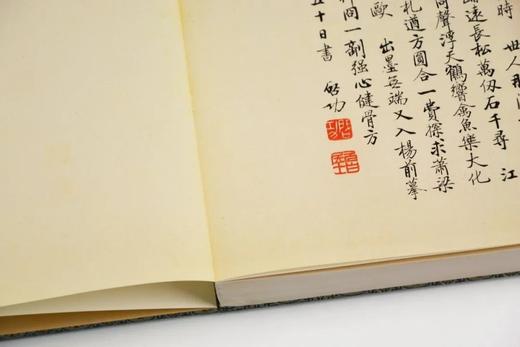 時 世人那
遠長松萬仭石千尋 江
聲浮天鶴響禽魚樂大化
札遒方圓合一貫探求蕭梁
歐 出墨無端又入楊前摹
間一劑强心健骨方
十日書 啓功
啓功